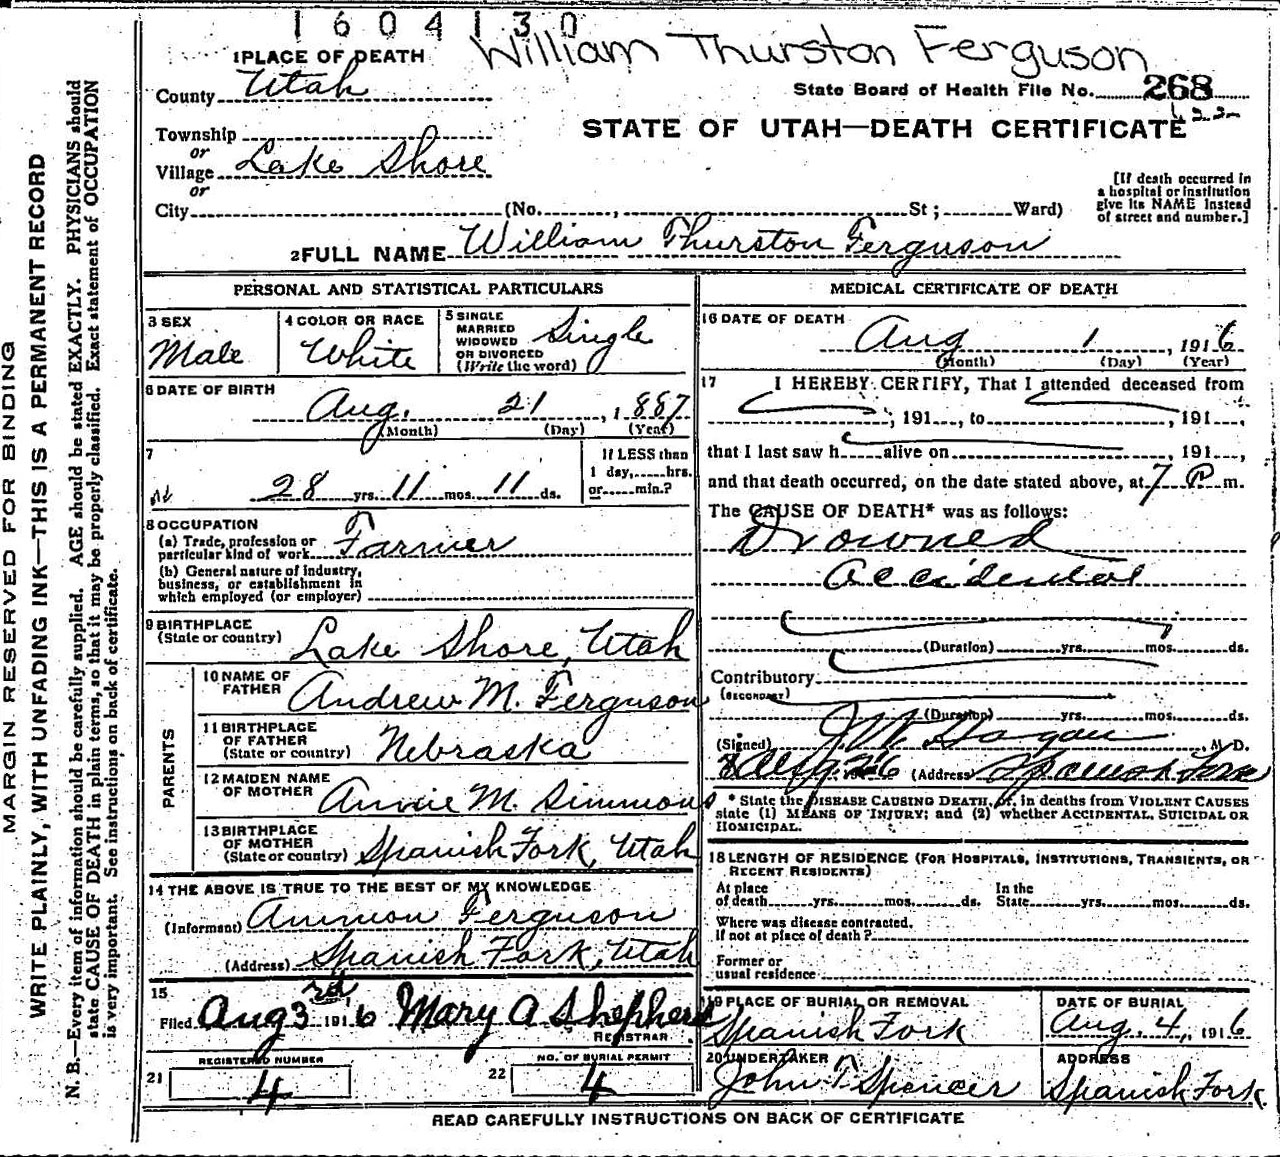 1604130
William Thurston Ferguson
1 PLACE OF DEATH
County Utah
State Board of Health File No. 268
Township
or
Village Lake Shore
or
STATE OF UTAH—DEATH CERTIFICATE
City (No. , St ; Ward)
[If death occurred in
a hospital or institution
give its NAME instead
of street and number.]
2 FULL NAME William Thurston Ferguson
PERSONAL AND STATISTICAL PARTICULARS
3 SEX
Male
4 COLOR OR RACE
White
5 SINGLE
MARRIED
WIDOWED
OR DIVORCED
(Write the word)
Single
6 DATE OF BIRTH
Aug. 21, 1887
(Month) (Day) (Year)
7
28 yrs. 11 mos. 11 ds.
If LESS than
1 day, hrs.
or min.?
8 OCCUPATION
(a) Trade, profession or
particular kind of work Farmer
(b) General nature of industry,
business, or establishment in
which employed (or employer)
9 BIRTHPLACE
(State or country) Lake Shore, Utah
PARENTS
10 NAME OF
FATHER Andrew M. Ferguson
11 BIRTHPLACE
OF FATHER
(State or country) Nebraska
12 MAIDEN NAME
OF MOTHER Annie M. Simmons
13 BIRTHPLACE
OF MOTHER
(State or country) Spanish Fork, Utah
14 THE ABOVE IS TRUE TO THE BEST OF MY KNOWLEDGE
(Informant) Ammon Ferguson
(Address) Spanish Fork, Utah
15
Filed Aug 3rd 1916 Mary A Shepherd
REGISTRAR
REGISTERED NUMBER
21 4
NO. OF BURIAL PERMIT
22 4
MEDICAL CERTIFICATE OF DEATH
16 DATE OF DEATH
Aug 1, 1916
(Month) (Day) (Year)
17 I HEREBY CERTIFY, That I attended deceased from
, 191 , to , 191 ,
that I last saw h alive on , 191 ,
and that death occurred, on the date stated above, at 7 P m.
The CAUSE OF DEATH* was as follows:
Drowned
accidental
(Duration) yrs. mos. ds.
Contributory
(SECONDARY)
(Duration) yrs. mos. ds.
(Signed) M. D.
(Address) Spanish Fork
* State the DISEASE CAUSING DEATH, or, in deaths from VIOLENT CAUSES
state (1) MEANS OF INJURY; and (2) whether ACCIDENTAL, SUICIDAL OR
HOMICIDAL.
18 LENGTH OF RESIDENCE (FOR HOSPITALS, INSTITUTIONS, TRANSIENTS, OR
RECENT RESIDENTS)
At place
of death yrs. mos. ds.
In the
State yrs. mos. ds.
Where was disease contracted.
If not at place of death ?
Former or
usual residence
19 PLACE OF BURIAL OR REMOVAL
Spanish Fork
DATE OF BURIAL
Aug. 4, 1916
20 UNDERTAKER
John T. Spencer
ADDRESS
Spanish Fork
READ CAREFULLY INSTRUCTIONS ON BACK OF CERTIFICATE
MARGIN RESERVED FOR BINDING
WRITE PLAINLY, WITH UNFADING INK—THIS IS A PERMANENT RECORD
N. B.—Every item of information should be carefully supplied. AGE should be stated EXACTLY. PHYSICIANS should
state CAUSE OF DEATH in plain terms, so that it may be properly classified. Exact statement of OCCUPATION
is very important. See instructions on back of certificate.